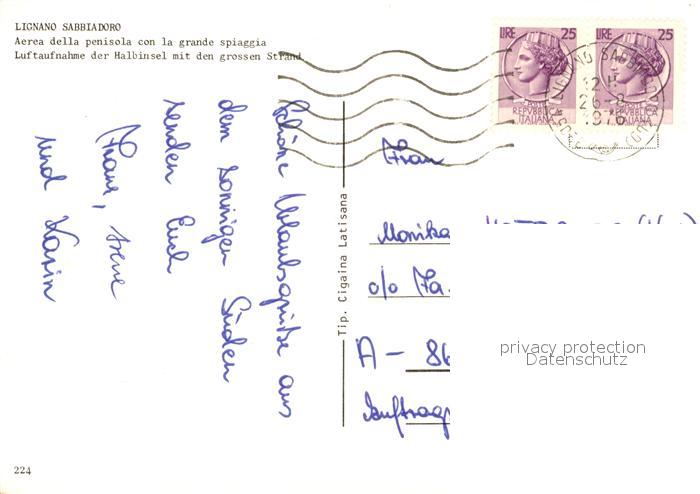 LIGNANO SABBIADORO
Aerea della penisola con la grande spiaggia
Luftaufnahme der Halbinsel mit den grossen Strand
LIRE 25
REPUBBLICA
ITALIANA
LIRE 25
REPUBBLICA
ITALIANA
LIGNANO SABBIADORO
12 H
26-8
1976
(UDINE)
Schöne Urlaubsgrüße aus
dem sonnigen Süden
senden Euch
Franz, Irene
und Karin
Tip. Cigaina Latisana
Frau
Monika
c/o Fa.
A - 86
privacy protection
Datenschutz
224